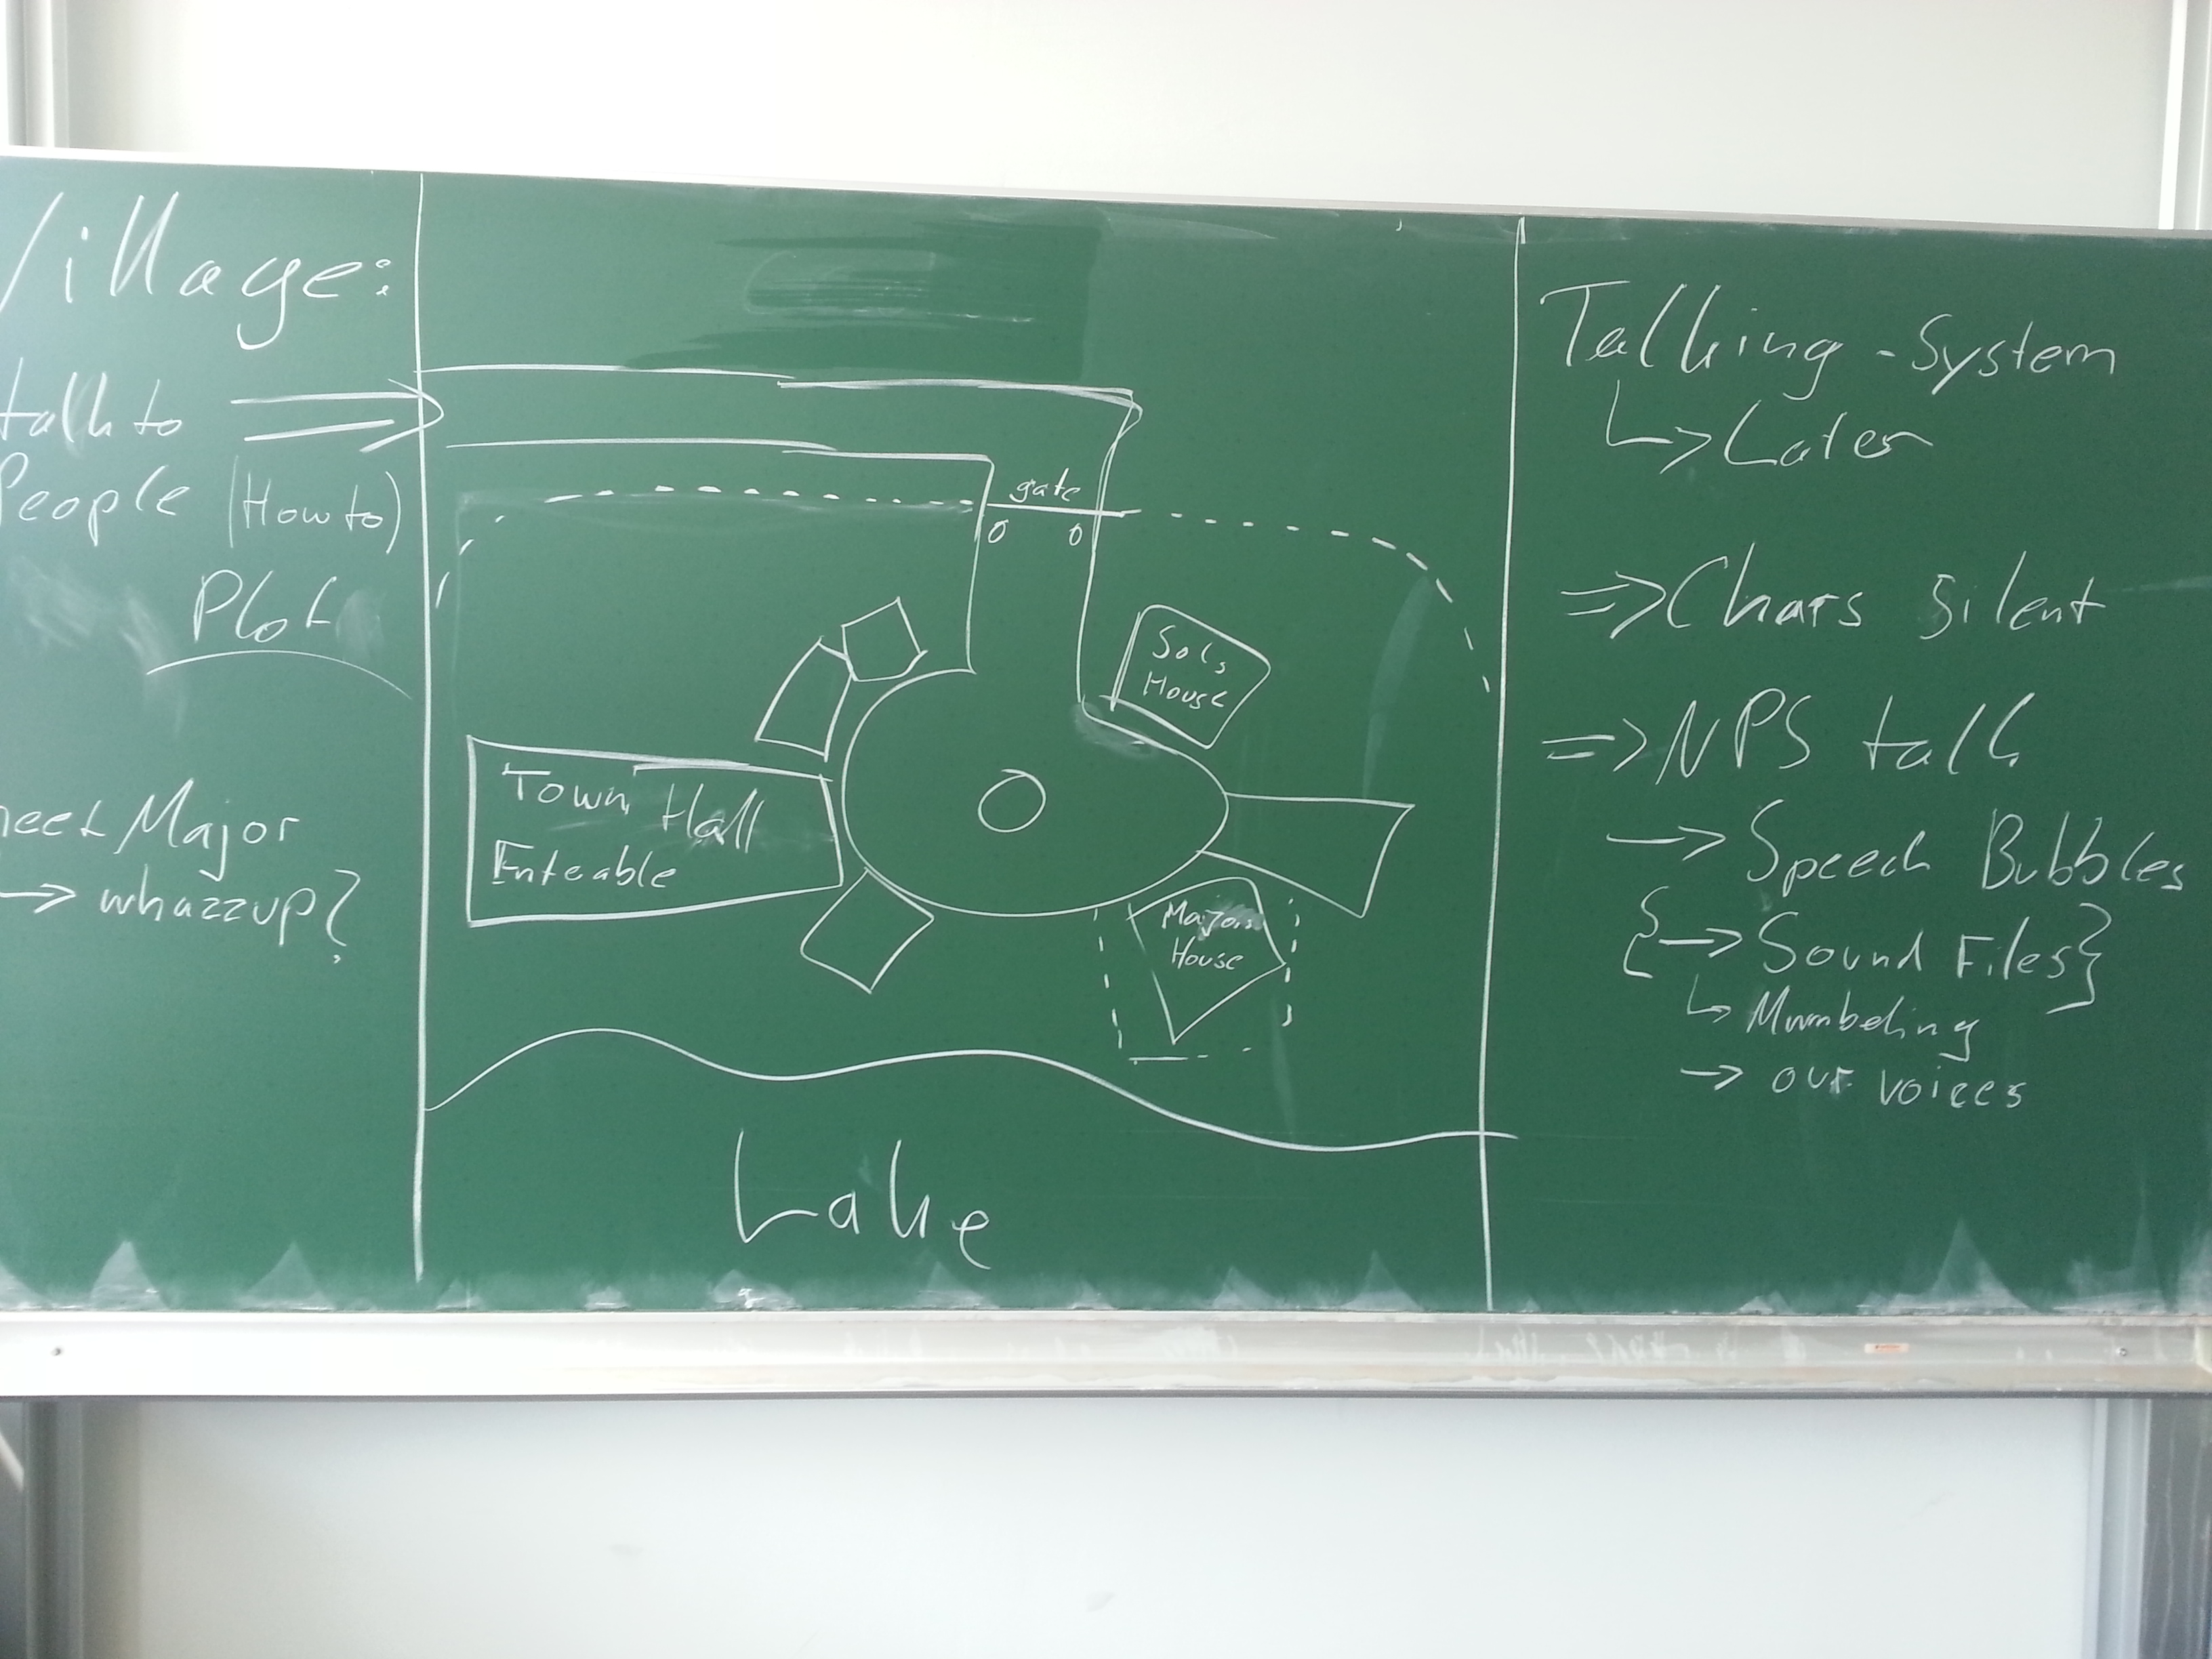 Village:
talk to
People (How to)
Plot
meet Major
→ whazzup?
gate
O O
Sols
House
Town Hall
Enteable
Majors
House
Lake
Talking-System
↳ Later
⇒ Chars silent
⇒ NPS talk
→ Speech Bubbles
{→ Sound Files}
↳ Mumbeling
→ our voices